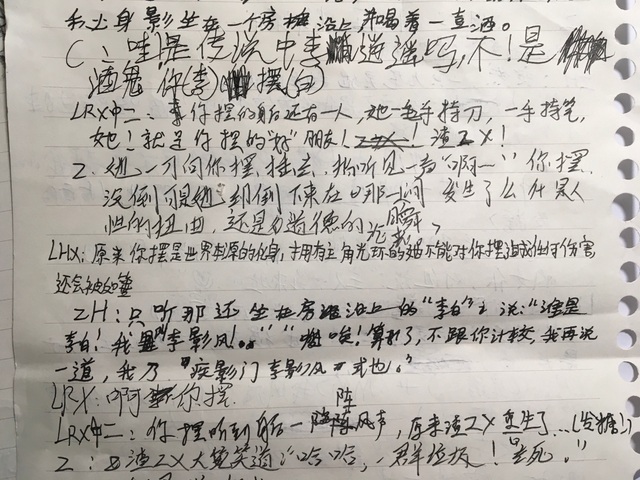 身影坐在一个房檐沿上,并喝着一直酒。
C:哇是传说中李逍遥吗,不!是
酒鬼你(李)摆(白)
LRX中二:你摆的身后还有一人,她一手持刀,一手持笔,
她!就是你摆的"好"朋友!渣ZX!
Z:她一刀向你摆捶去,指听见一声"啊—"你摆
没倒可是她却倒下来在那一瞬间发生了什么是人
性的扭曲,还是道德的沦
LHX:原来你摆是世界本原的化身,拥有主角光环的她不能对你摆造成任何伤害
还会被
ZH:只听那还坐在房沿上的"李白"说:"谁是
李白!我是"李影风"。唉!算了,不跟你计较,我再说
一遍,我乃"疾影门李影风"式也。"
LRX:啊你摆
LRX中二:你摆听到身后一阵风声,原来渣ZX重生了...(发糖!)
Z:渣ZX大笑道"哈哈,一群垃圾!去死。"